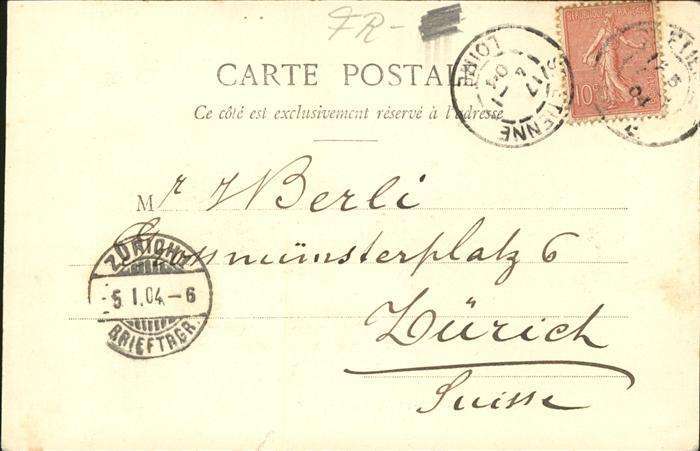 FR-
CARTE POSTALE
Ce côté est exclusivement réservé à l'adresse
RÉPUBLIQUE FRANÇAISE
10c
ST ETIENNE
LOIRE
04
Mr J Berli
Grossmünsterplatz 6
Zürich
Suisse
ZÜRICH
-5 I.04.-6
BRIEFTRGR.